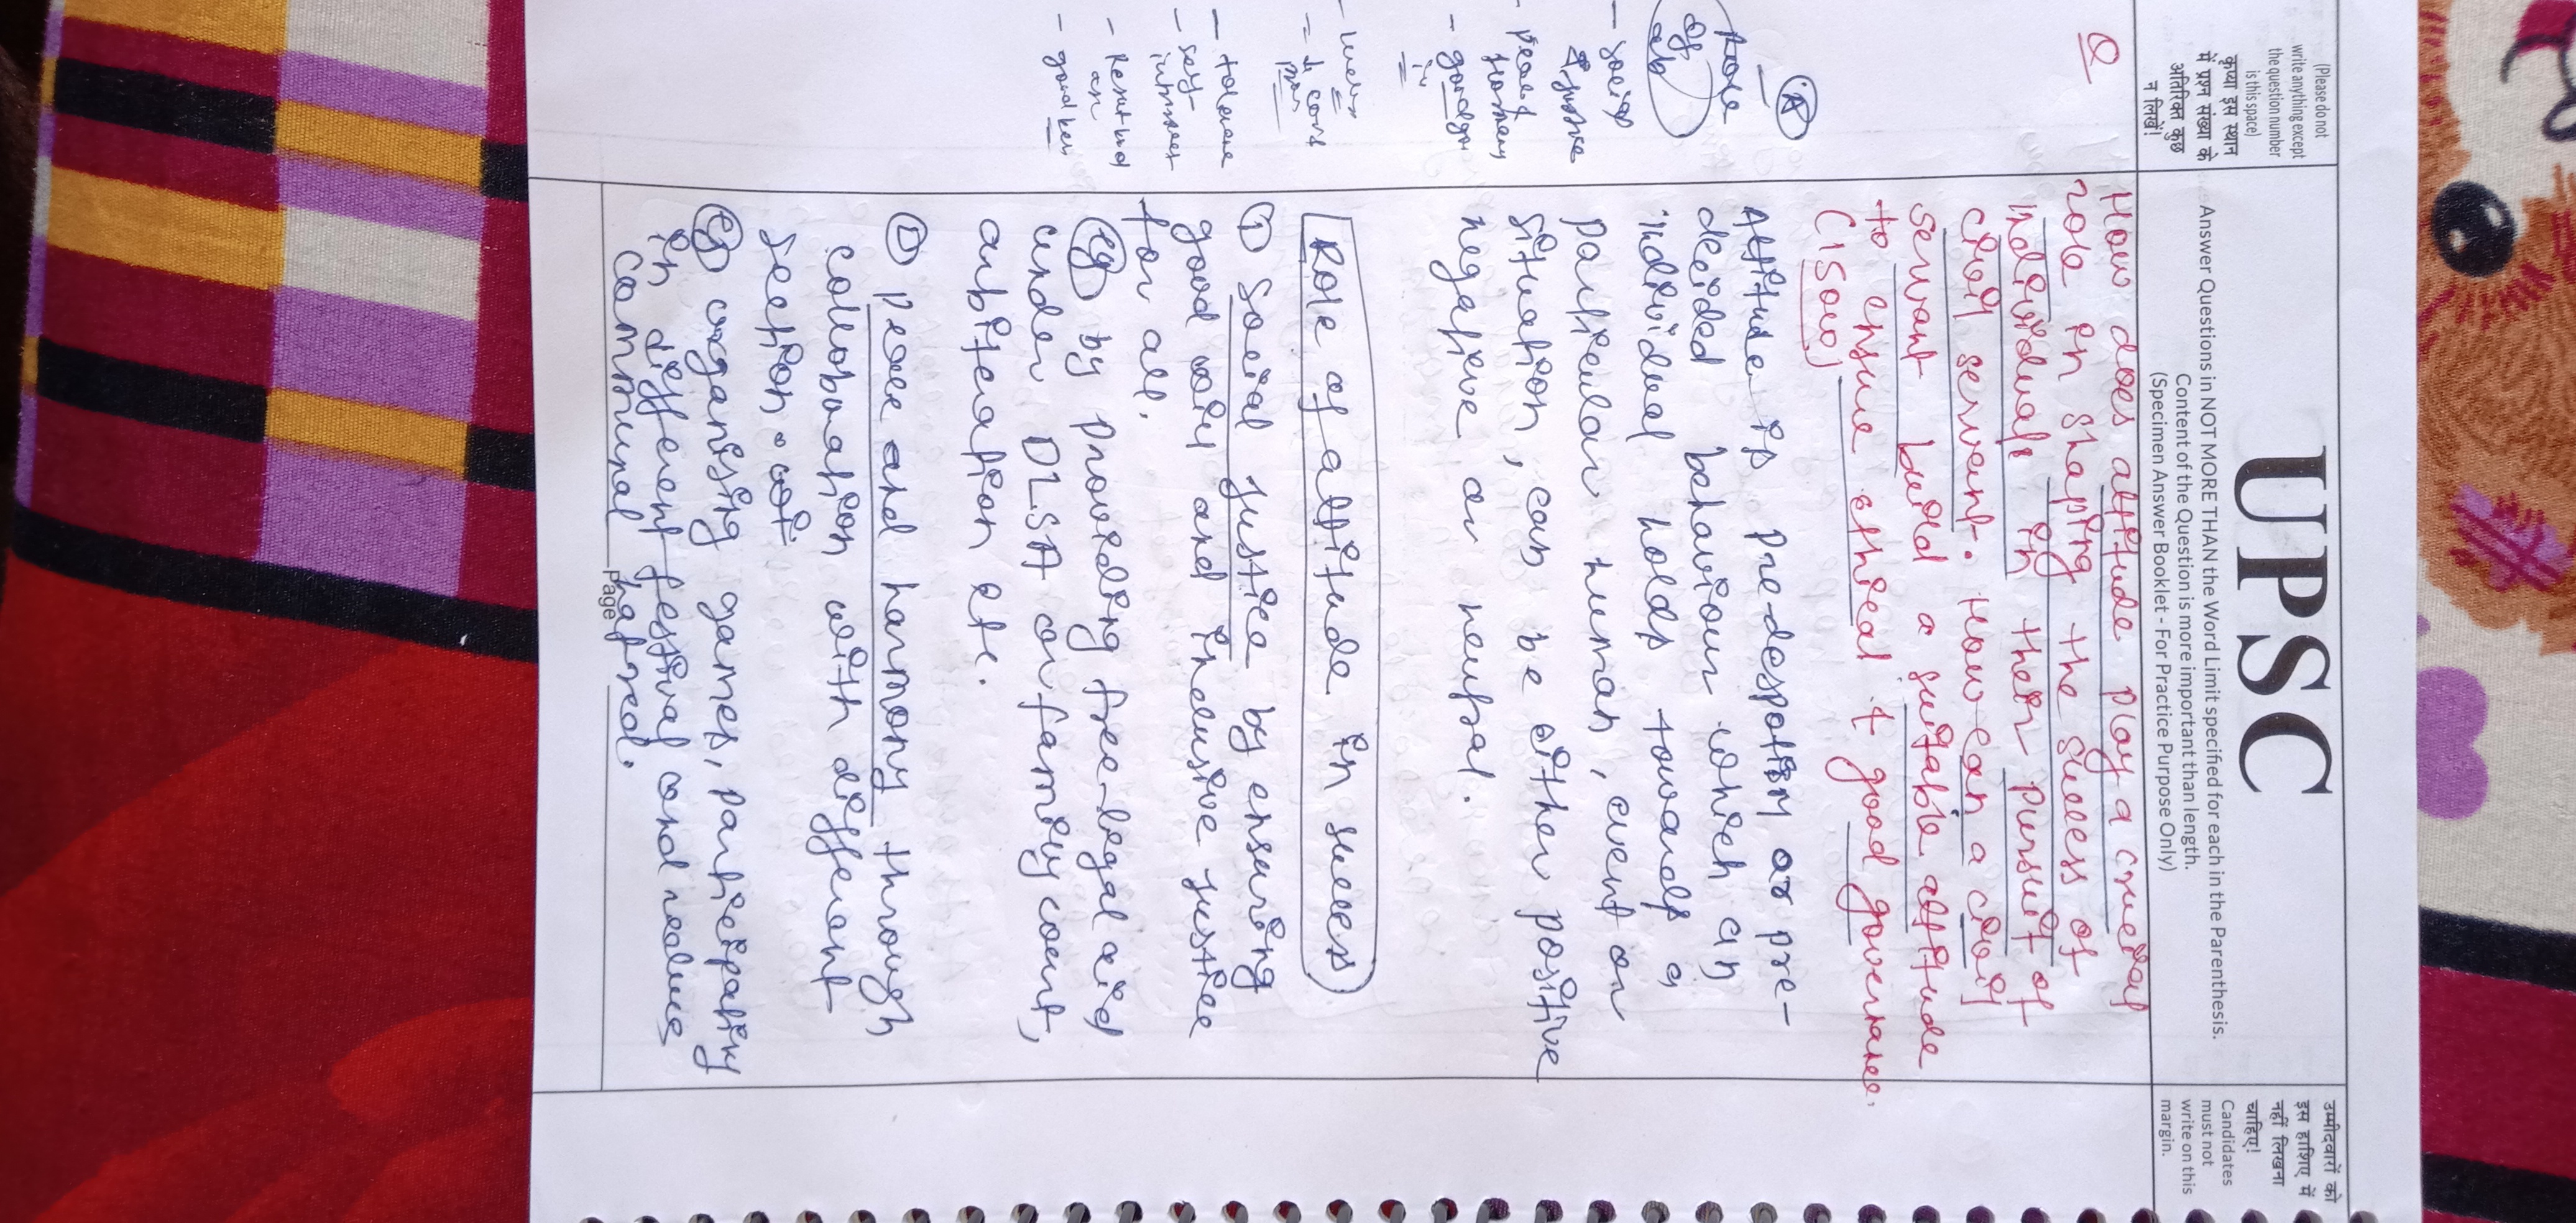 (Please do not
write anything except
the question number
is this space)
कृप्या इस स्थान
में प्रश्न संख्या के
अतिरिक्त कुछ
न लिखें!
UPSC
Answer Questions in NOT MORE THAN the Word Limit specified for each in the Parenthesis.
Content of the Question is more important than length.
(Specimen Answer Booklet - For Practice Purpose Only)
उम्मीदवारों को
इस हाशिए में
नहीं लिखना
चाहिए!
Candidates
must not
write on this
margin.
Q
How does attitude play a crucial
role in shaping the success of
individuals in their pursuit of
civil servant. How can a civil
servant build a suitable attitude
to ensure ethical & good governance.
(150w)
A
Role
of
- social
justice
- peace &
harmony
- good
- tolerance
Attitude is pre-despotism or pre-
decided behaviour which an
individual holds towards a
particular human, event or
situation, can be either positive
negative or neutral.
Role of attitude in success
① Social justice by ensuring
good will and inclusive justice
for all.
eg by providing free-legal aid
under DLSA or family court,
arbiteration etc.
② Peace and harmony through
colloboration with different
section.
eg organising games, participating
in different festival and reduce
communal hatred.
Page